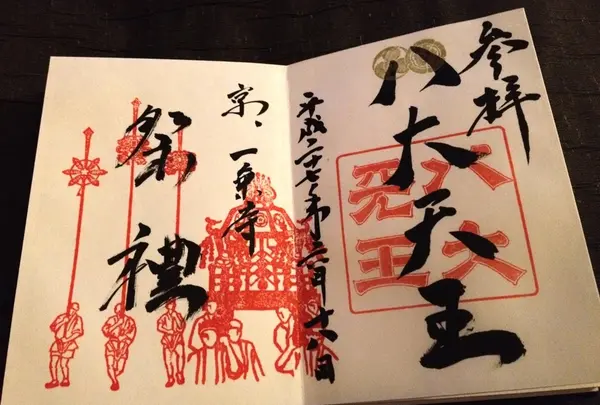 参拝
八大天王
八大
天王
平成二十七年六月十八日
京、一乗寺
祭禮